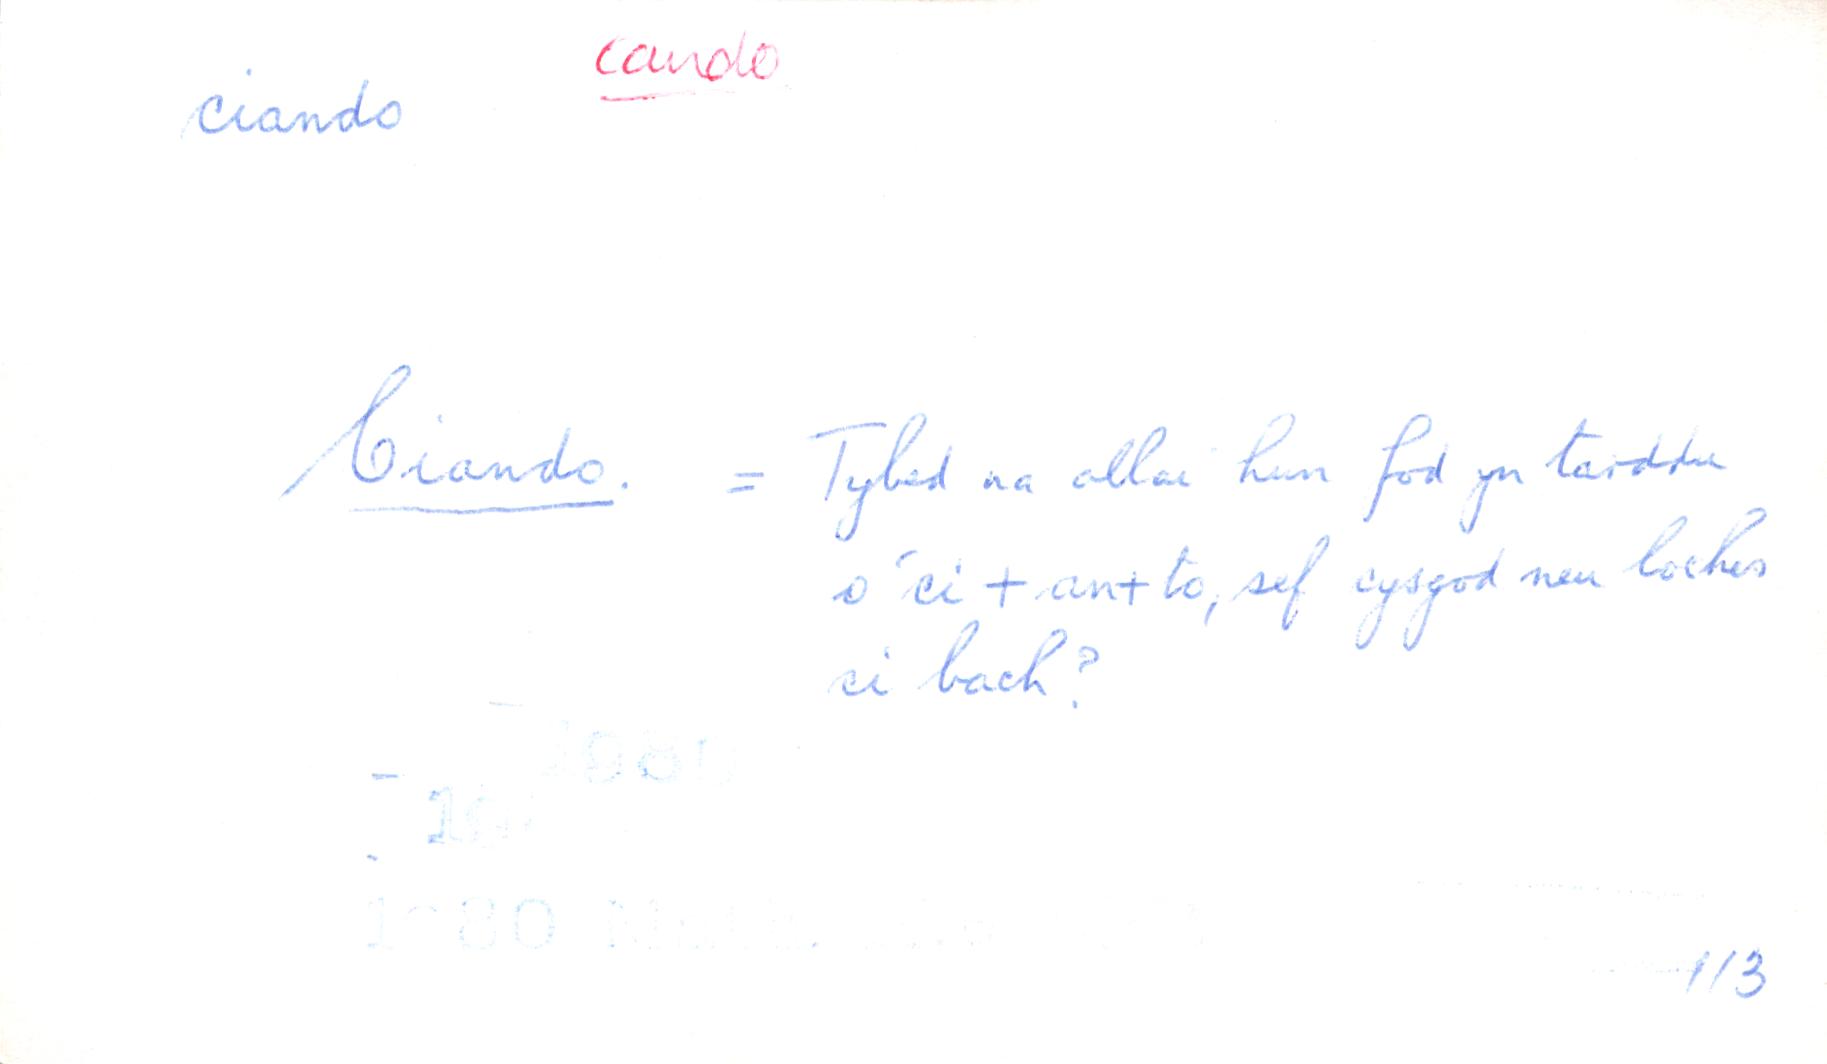 cando
ciando
Ciando. = Tybed na allai hun fod yn tarddu
o ci + an + to, sef cysgod neu loches
ci bach?
1980
1/3